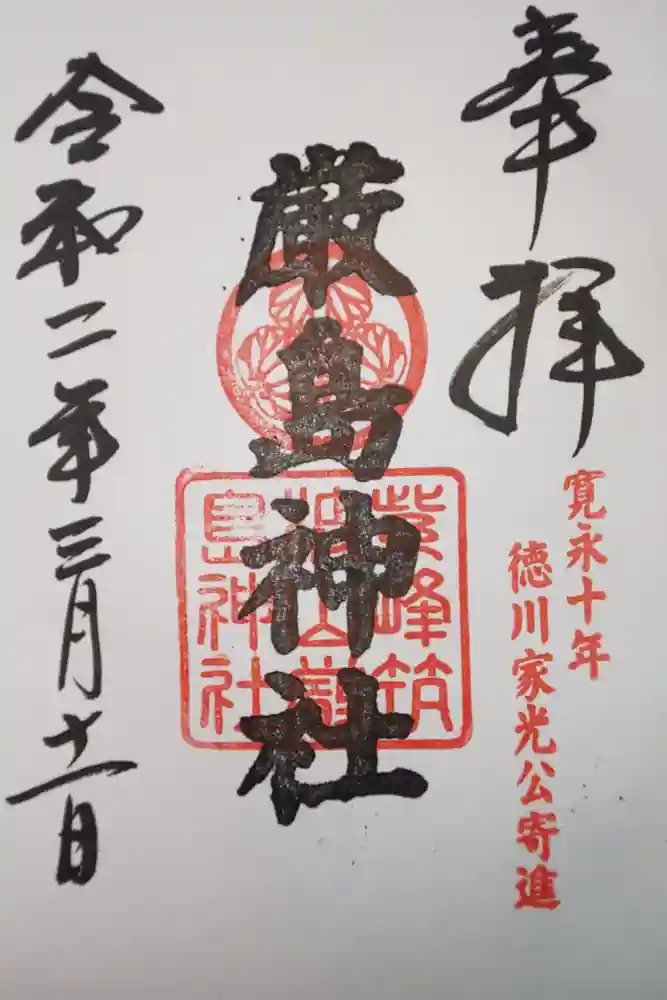 奉拝
寛永十年
徳川家光公寄進
厳島神社
紫峰筑
波山厳
島神社
令和二年三月十一日